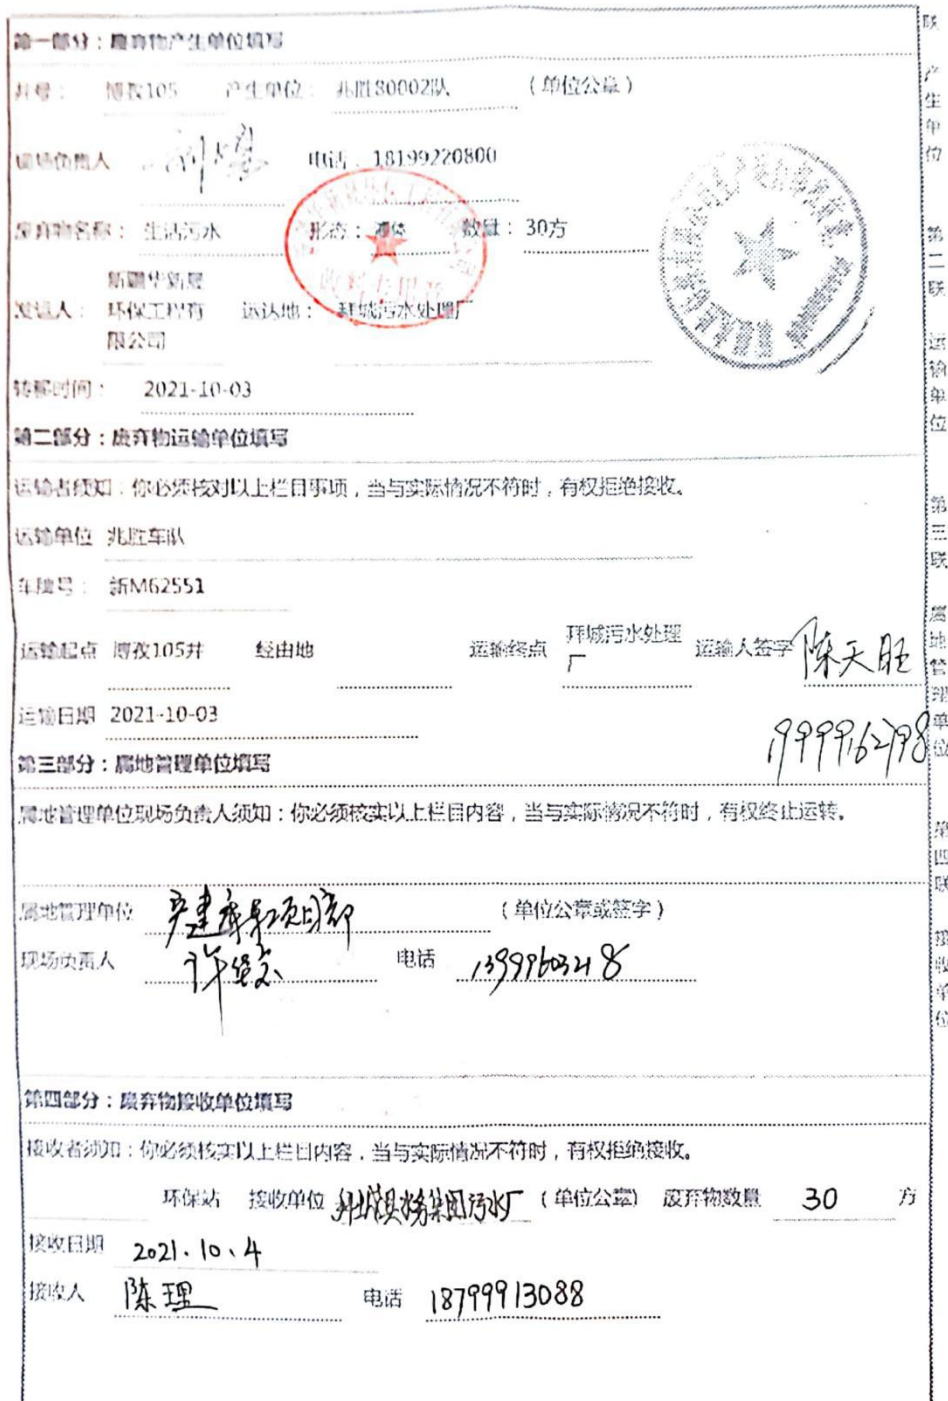 第一部分：废弃物产生单位填写
井号： 博孜105 产生单位： 兆胜80002队 （单位公章）
现场负责人 电话： 18199220800
废弃物名称： 生活污水 形态： 液体 数量： 30方
新疆华新晟
发运人： 环保工程有 运达地： 拜城污水处理厂
限公司
转移时间： 2021-10-03
第二部分：废弃物运输单位填写
运输者须知：你必须核对以上栏目事项，当与实际情况不符时，有权拒绝接收。
运输单位 兆胜车队
车牌号： 新M62551
运输起点 博孜105井 经由地 运输终点 拜城污水处理厂 运输人签字 陈天旺
运输日期 2021-10-03
19999162798
第三部分：属地管理单位填写
属地管理单位现场负责人须知：你必须核实以上栏目内容，当与实际情况不符时，有权终止运转。
属地管理单位 项目部 （单位公章或签字）
现场负责人 许 电话 13999603218
第四部分：废弃物接收单位填写
接收者须知：你必须核实以上栏目内容，当与实际情况不符时，有权拒绝接收。
环保站 接收单位 拜城县水务集团污水厂 （单位公章） 废弃物数量 30 方
接收日期 2021.10.4
接收人 陈理 电话 18799913088
联 产生单位 第二联 运输单位 第三联 属地管理单位 第四联 接收单位